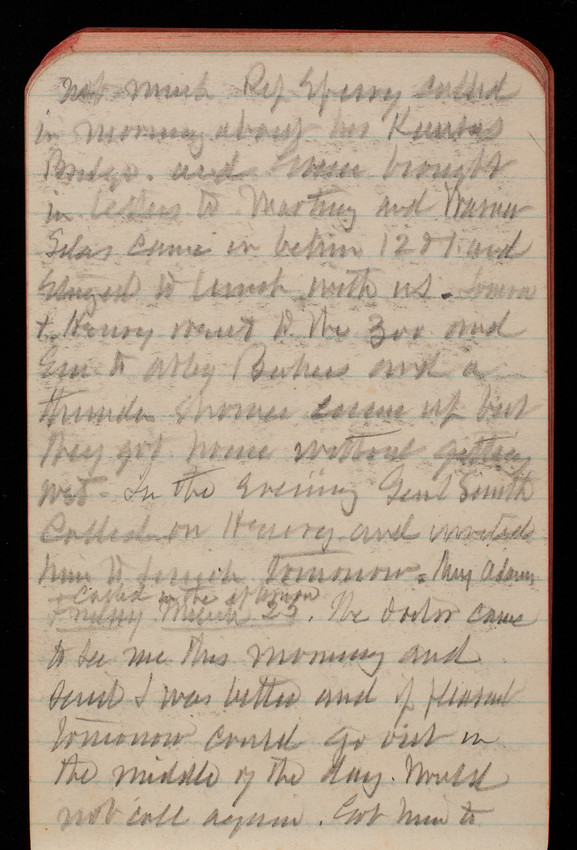 not much. Rep Sperry called
in morning about his Kansas
Bridge. and brought
in letters to and Warner
Silas came in between 12 & 1 and
stayed to lunch with us.
& Henry went to the Zoo and
Em to Abby and a
thunder shower came up but
they got home without getting
wet. In the evening Genl Smith
called on Henry and invited
him to lunch tomorrow. Mrs Adams
called in the afternoon
Friday March 25. The doctor came
to see me this morning and
said I was better and if pleasant
tomorrow could go out in
the middle of the day. Would
not call again. Got him to